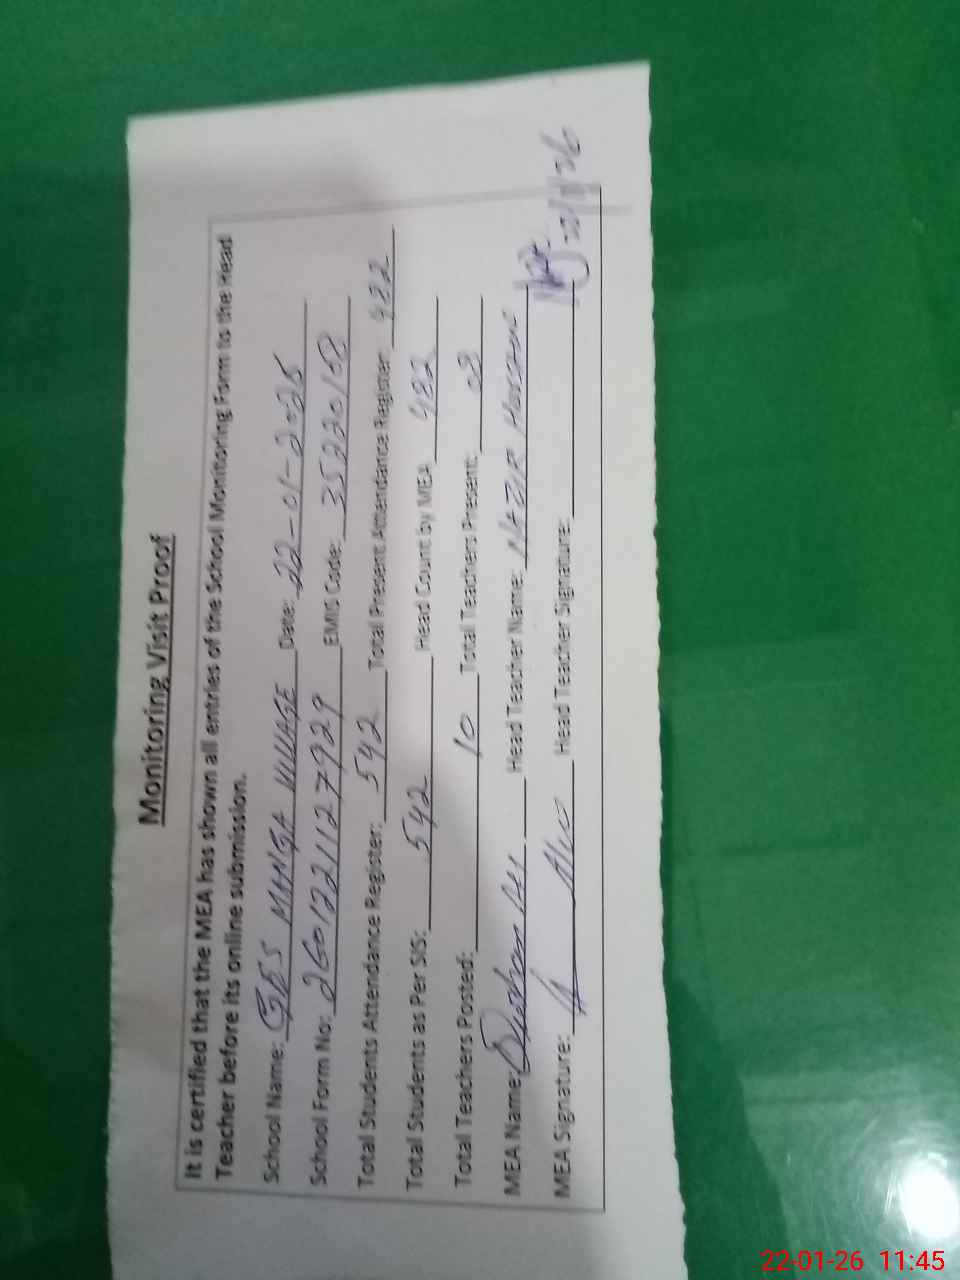 Monitoring Visit Proof
It is certified that the MEA has shown all entries of the School Monitoring Form to the Head
Teacher before its online submission.
School Name: GES MANGA VILLAGE Date: 22-01-2025
School Form No: 2601221127929 EMIS Code: 35220168
Total Students Attendance Register: 542 Total Present Attendance Register: 482
Total Students as Per SIS: 542 Head Count by MEA 482
Total Teachers Posted: 10 Total Teachers Present: 08
MEA Name: Ali Head Teacher Name: NAZIR HUSSAIN
MEA Signature: Head Teacher Signature:
22-01-26 11:45